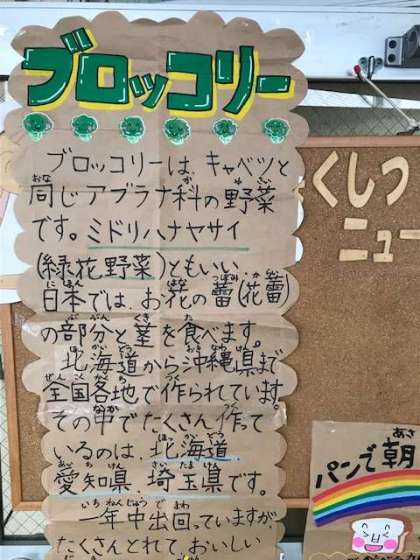 ブロッコリー
ブロッコリーは、キャベツと
同じアブラナ科の野菜
です。ミドリハナヤサイ
(緑花野菜)ともいい
日本では、お花の蕾(花蕾)
の部分と茎を食べます。
北海道から沖縄県まで
全国各地で作られています。
その中でたくさん作って
いるのは、北海道
愛知県、埼玉県です。
一年中出回っていますが、
たくさんとれて おいしい
くしつ
ニュー
パンで朝